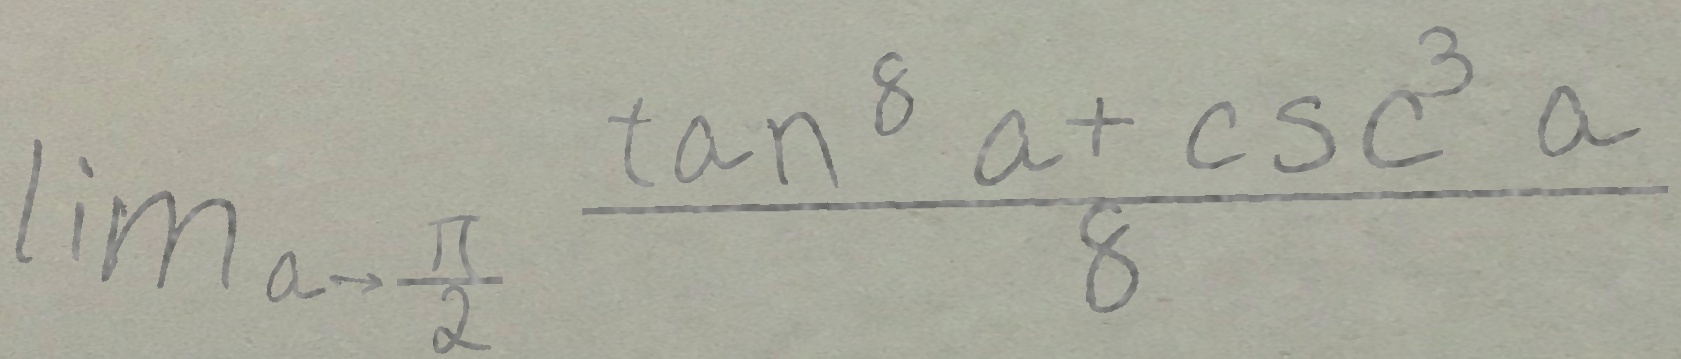 \lim_{a \to \frac{\pi}{2}} \frac{\tan^8 a + \csc^3 a}{8}